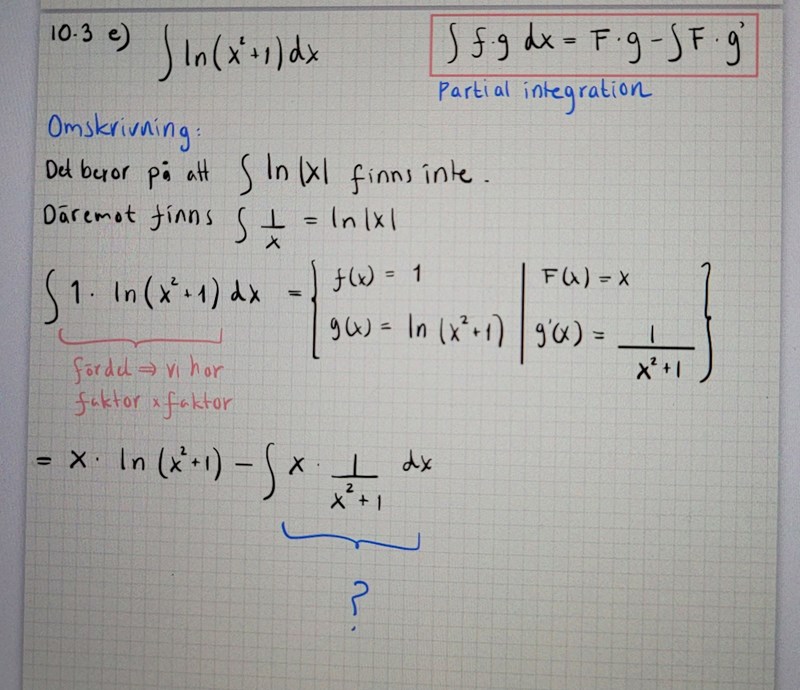 10.3 e) ∫ ln(x²+1) dx
∫ f·g dx = F·g - ∫ F·g'
Partial integration
Omskrivning:
Det beror på att ∫ ln |x| finns inte.
Däremot finns ∫ 1/x = ln |x|
∫ 1· ln(x²+1) dx = { f(x) = 1 | F(x) = x
g(x) = ln (x²+1) | g'(x) = 1/(x²+1) }
fördel ⇒ vi har
faktor × faktor
= x· ln (x²+1) - ∫ x · 1/(x²+1) dx
?